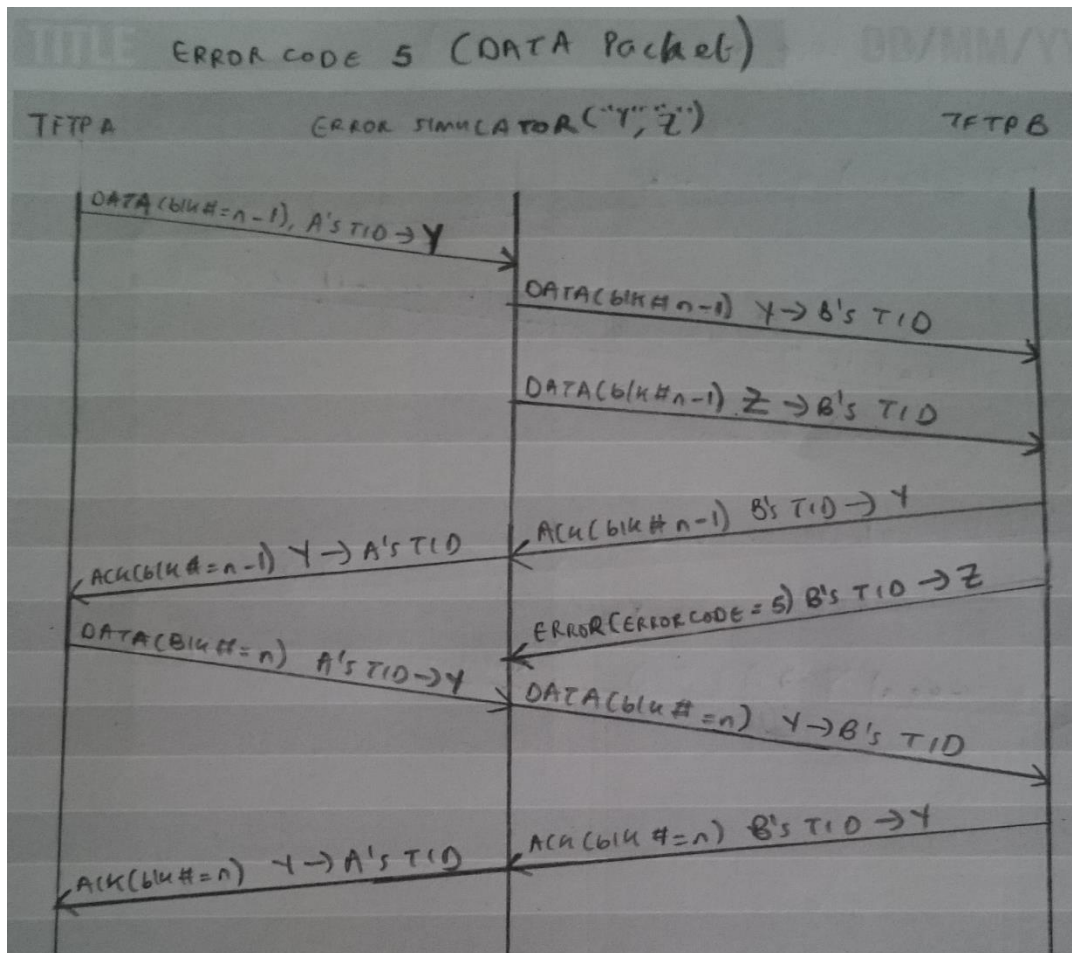 TITLE
YY/MM/DD
ERROR CODE 5 (DATA Packet)
TFTP A
ERROR SIMULATOR("Y", "Z")
TFTP B
DATA (blk#=n-1), A's TID→Y
DATA(blk#n-1) Y→B's TID
DATA(blk#n-1) Z→B's TID
ACK(blk#n-1) B's TID→Y
ACK(blk#=n-1) Y→A's TID
ERROR(ERROR CODE=5) B's TID→Z
DATA(Blk#=n) A's TID→Y
DATA(blk#=n) Y→B's TID
ACK(blk#=n) B's TID→Y
ACK(blk#=n) Y→A's TID